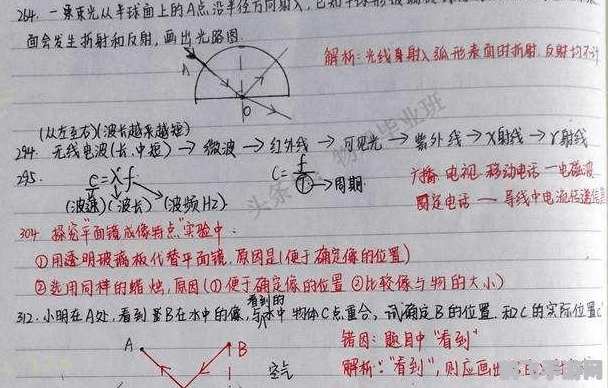 264. 一束束光从半球面上的A点沿半径方向射入,
面会发生折射和反射, 画出光路图.
A
O
解析: 光线身射入弧形表面时折射.反射均不计
(从左至右)(波长越来越短)
294. 无线电波(长.中短) → 微波 → 红外线 → 可见光 → 紫外线 → X射线 → γ射线
295. c=λf
(波速)(波长)(波频HZ)
T → 周期
广播 电视 移动电话 — 电磁波
固定电话 — 导线中电流传递信息
304. 探究"平面镜成像特点"实验中:
①用透明玻璃板代替平面镜, 原因是(便于确定像的位置)
②选用同样的蜡烛, 原因(①便于确定像的位置 ②比较像与物的大小)
312. 小明在A处, 看到 B在水中的像, 与看到的水中物体C点重合, 试确定B的位置 和C的实际位置C'
错因: 题目中"看到"
解析: "看到", 则应画出
A
B
空气